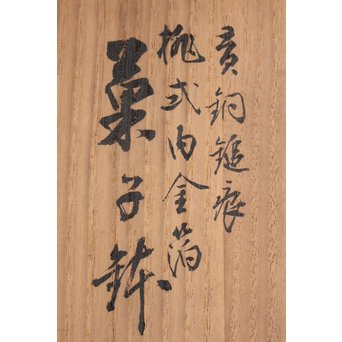 黄銅鎚痕
桃式内金箔
菓子鉢